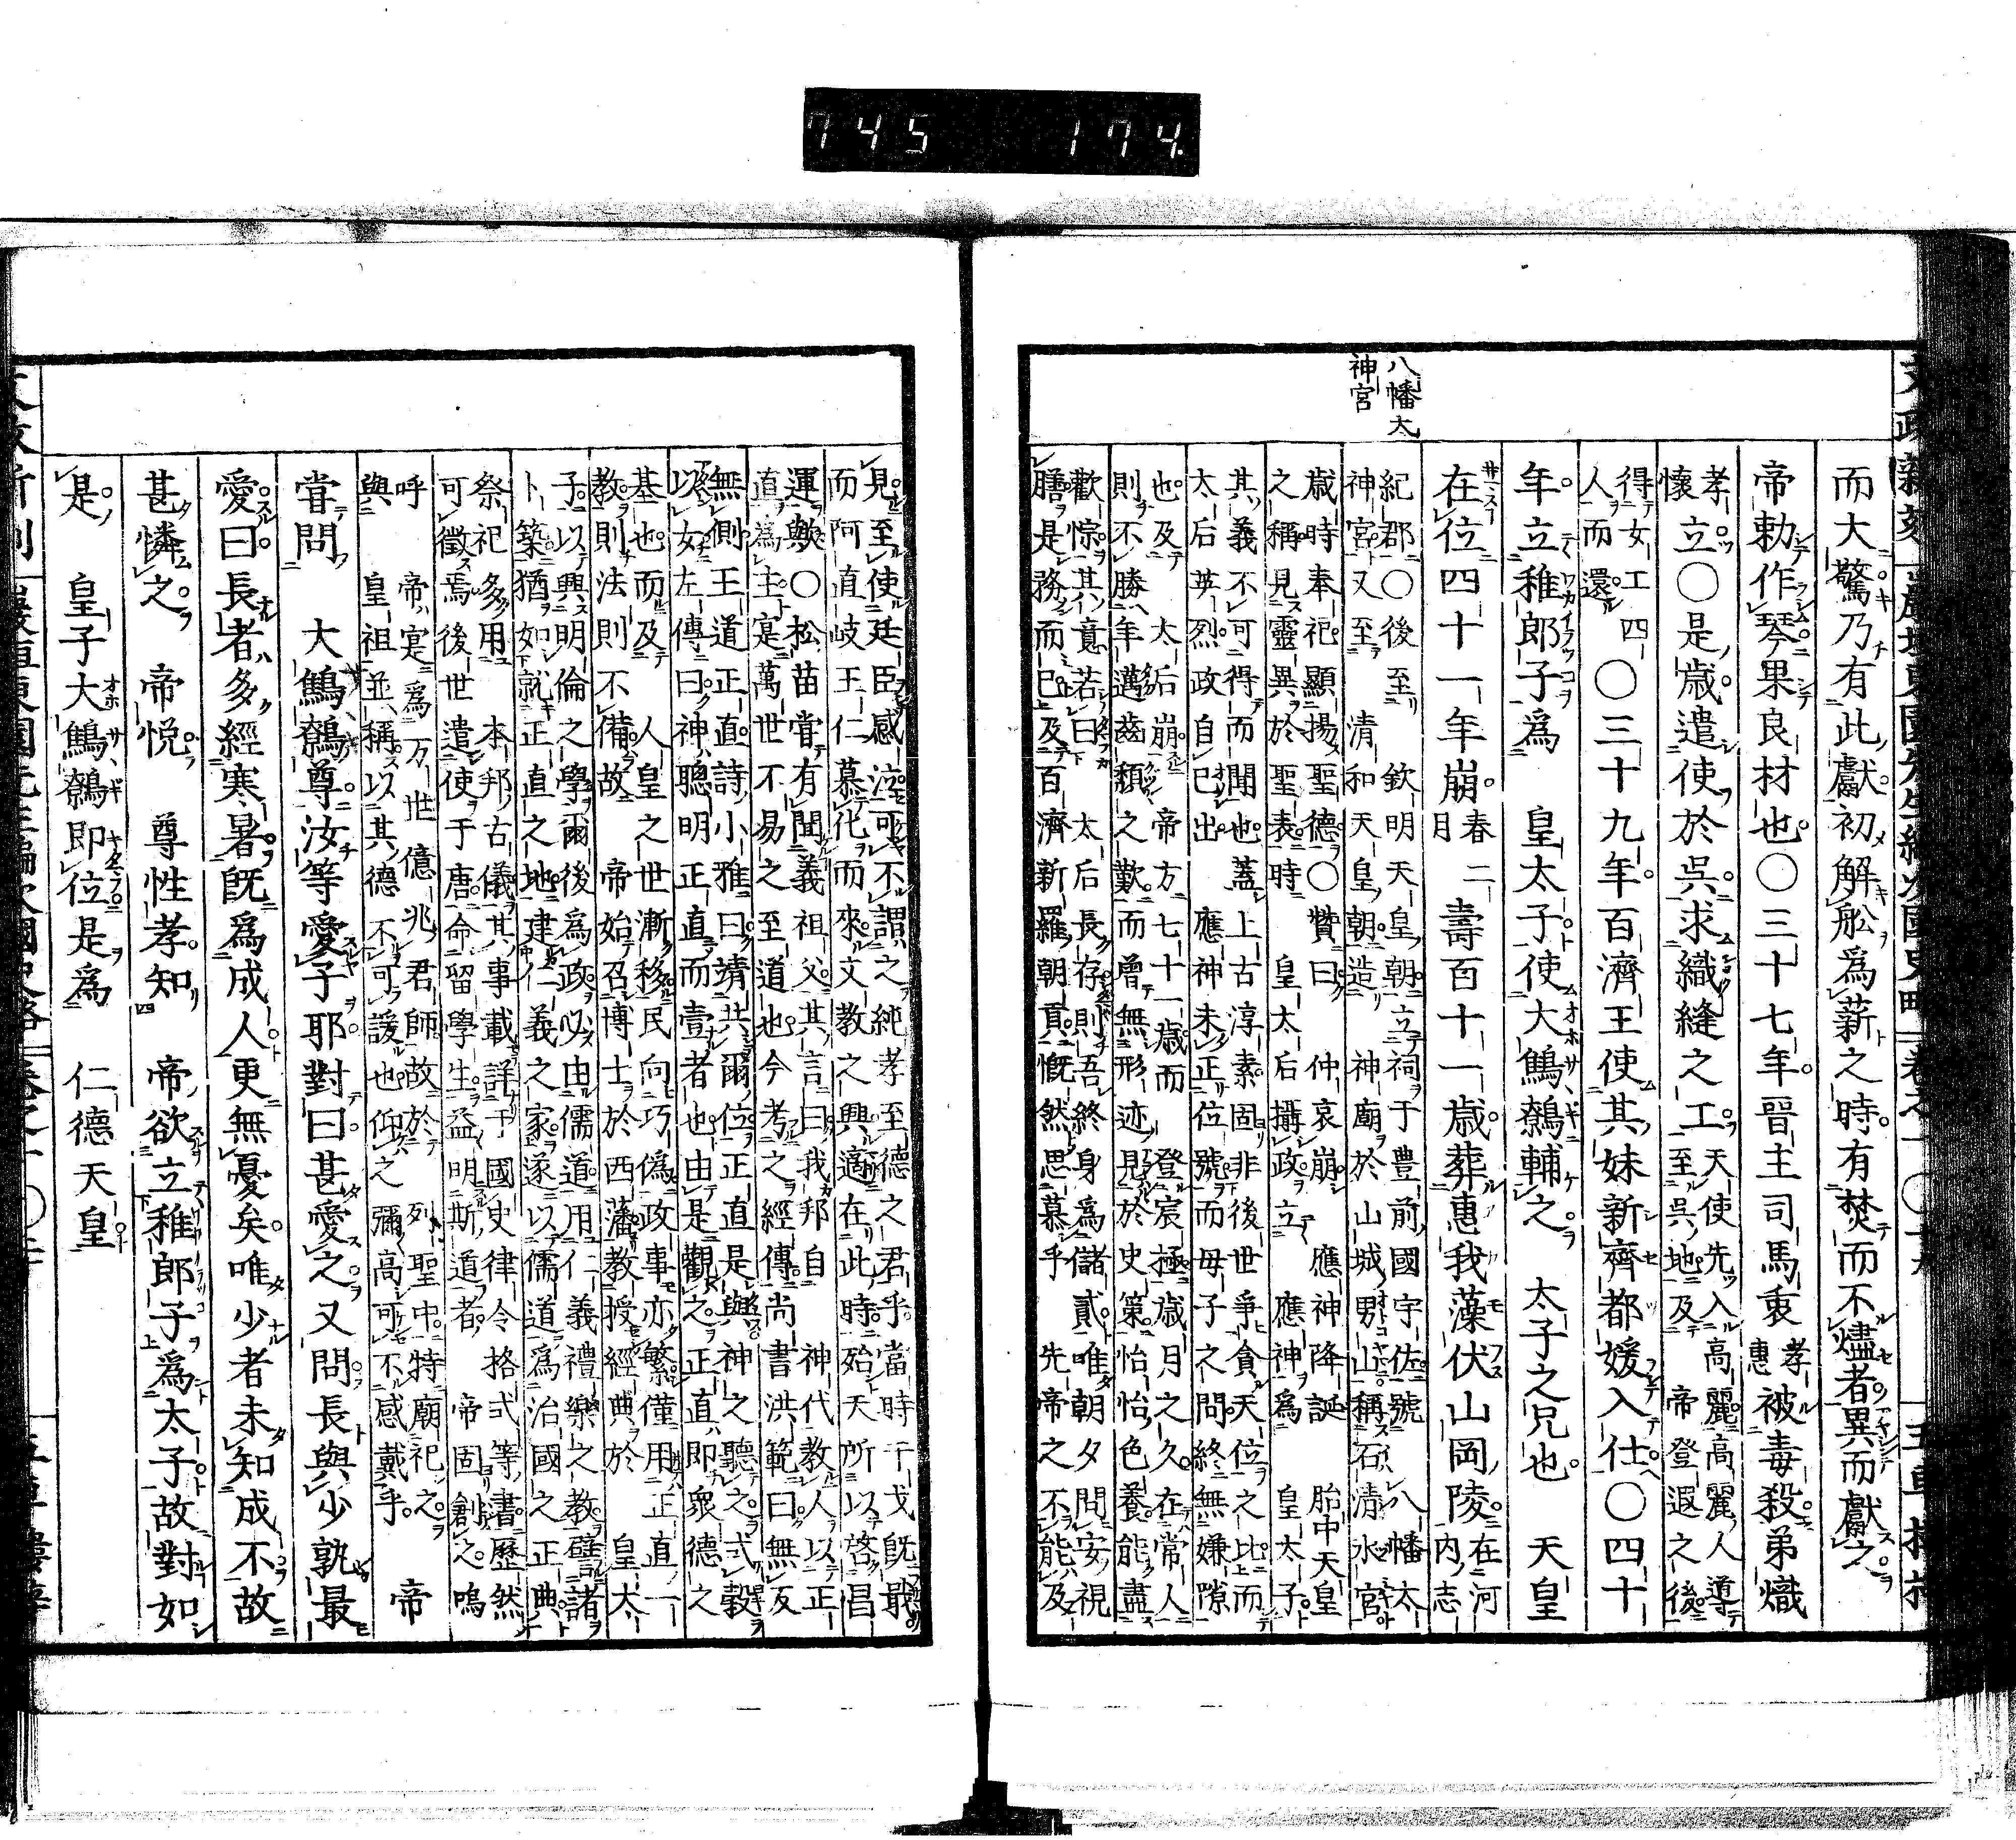 745 174.
八幡太
神宮
而大驚乃有此獻初解舩爲薪之時有焚而不燼者異而獻之
帝勅作琴果良材也〇三十七年晉主司馬衷孝惠被毒殺弟熾
孝懷立〇是歲遣使於吳求織縫之工天使先入高麗高麗人導至吳地及帝登遐之後
得女工四人而還〇三十九年百濟王使其妹新齊都媛入仕〇四十
年立稚郎子爲 皇太子使大鷦鷯輔之 太子之兄也 天皇
在位四十一年崩春二月壽百十一歲葬惠我藻伏山岡陵在河內志
紀郡〇後至 欽明天皇朝立祠于豊前國宇佐號 八幡太
神宮又至 清和天皇朝造 神廟於山城男山稱石清水宮
歲時奉祀顯揚聖德〇贊曰 仲哀崩 應神降誕 胎中天皇
之稱見靈異於聖表時 皇太后攝政立 應神爲 皇太子
其義不可得而聞也蓋上古淳素固非後世爭貪天位之比而
太后英烈政自已出 應神未正位號而母子之問終無嫌隙
也及 太后崩 帝方七十一歲而 登宸極歲月之久在常人
則不勝年邁齒頽之歎而曾無形迹見於史策怡怡色養能盡
歡悰其意若曰 太后長存則吾終身爲儲貳唯朝夕問安視
膳是務而已及百濟新羅朝貢慨然思慕乎 先帝之不能及
見至使廷臣感泣可不謂之純孝至德之君乎當時干戈旣戢
而阿直岐王仁慕化而來文教之興適在此時殆天所以啓昌
運歟〇松苗嘗有聞義祖父其言曰我邦自 神代教人以正
直爲主寔萬世不易之至道也今考之經傳尚書洪範曰無反
無側王道正直詩小雅曰靖共爾位正直是與神之聽之式穀
以女左傳曰神聰明正直而壹者也由是觀之正直即衆德之
基也而及 人皇之世漸移民向巧偽政事亦繁僅用正直一
教則法則不備故 帝始召博士於西藩教授經典於 皇太
子以興明倫之學爾後爲政必由儒道用仁義禮樂之教譬諸
卜築猶如就正直之地建仁義之家遂以儒道爲治國之正典
祭祀多用 本邦古儀其事載詳于國史律令格式等書歷然
可徵焉後世遣使于唐命留學生益明斯道者 帝固創之嗚
呼 帝寔爲万世億兆君師故於 列聖中特廟祀之
與 皇祖並稱以其德不可諼也仰之彌高可不感戴乎 帝
嘗問 大鷦鷯尊汝等愛子耶對曰甚愛之又問長與少孰最
愛曰長者多經寒暑旣爲成人更無憂矣唯少者未知成不故
甚憐之 帝悅 尊性孝知 帝欲立稚郎子爲太子故對如
是 皇子大鷦鷯即位是爲 仁德天皇